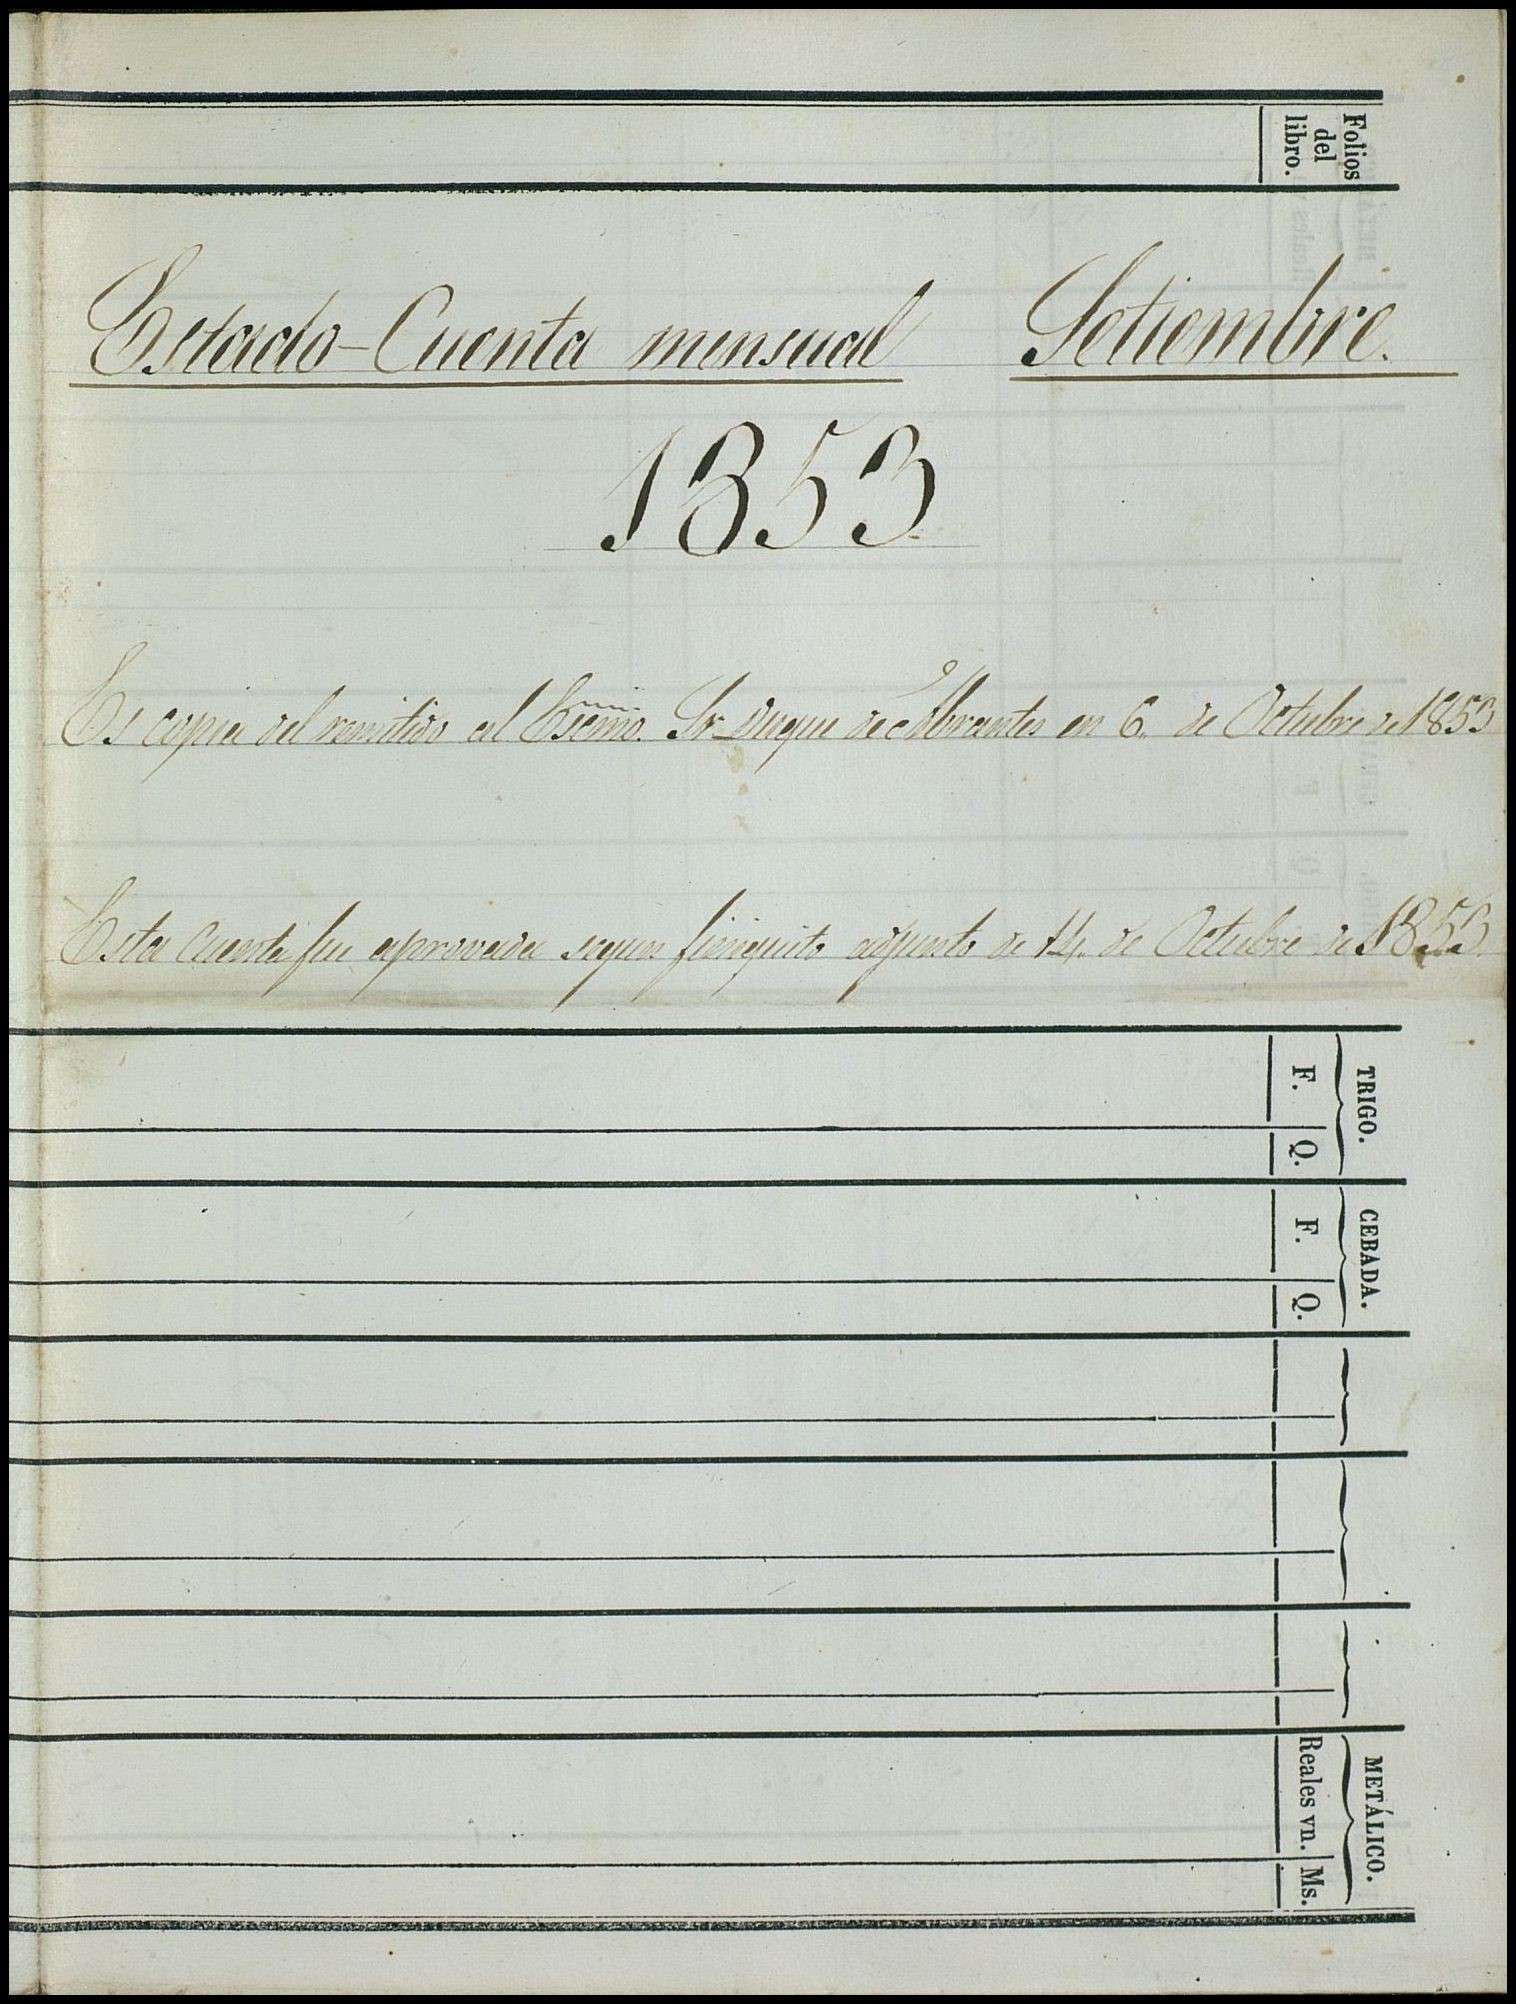 Folios
del
libro.
Estado-Cuenta mensual Setiembre.
1853
Es copia del remitido al Escmo. Sr. Duque de Abrantes en 6. de Octubre de 1853
Esta Cuenta fue aprovada segun finiquito adjunto de 14. de Octubre de 1853.
TRIGO.
F. Q.
CEBADA.
F. Q.
METÁLICO.
Reales vn. Ms.